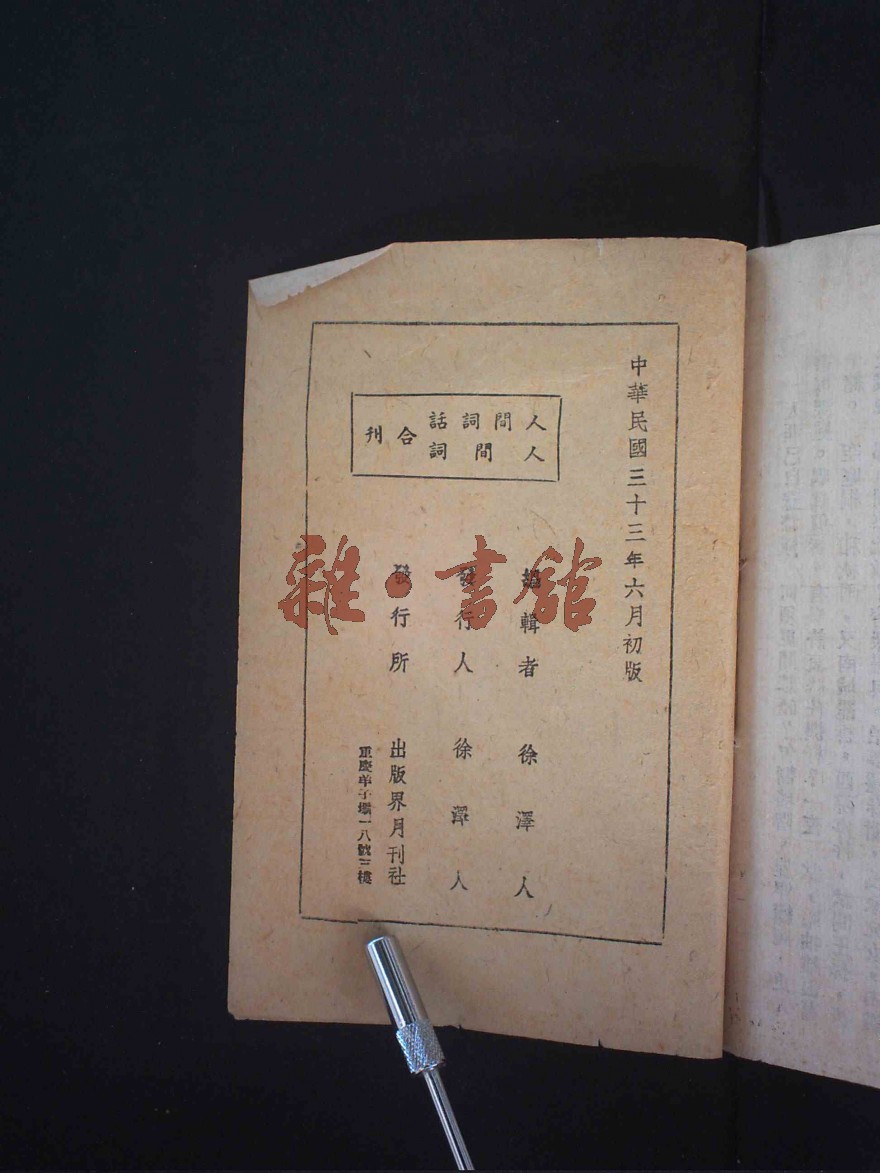 中華民國三十三年六月初版
人間詞話
人間詞
合刊
編輯者 徐澤人
發行人 徐澤人
發行所 出版界月刊社
重慶羊子壩一八號三樓
雜·書館